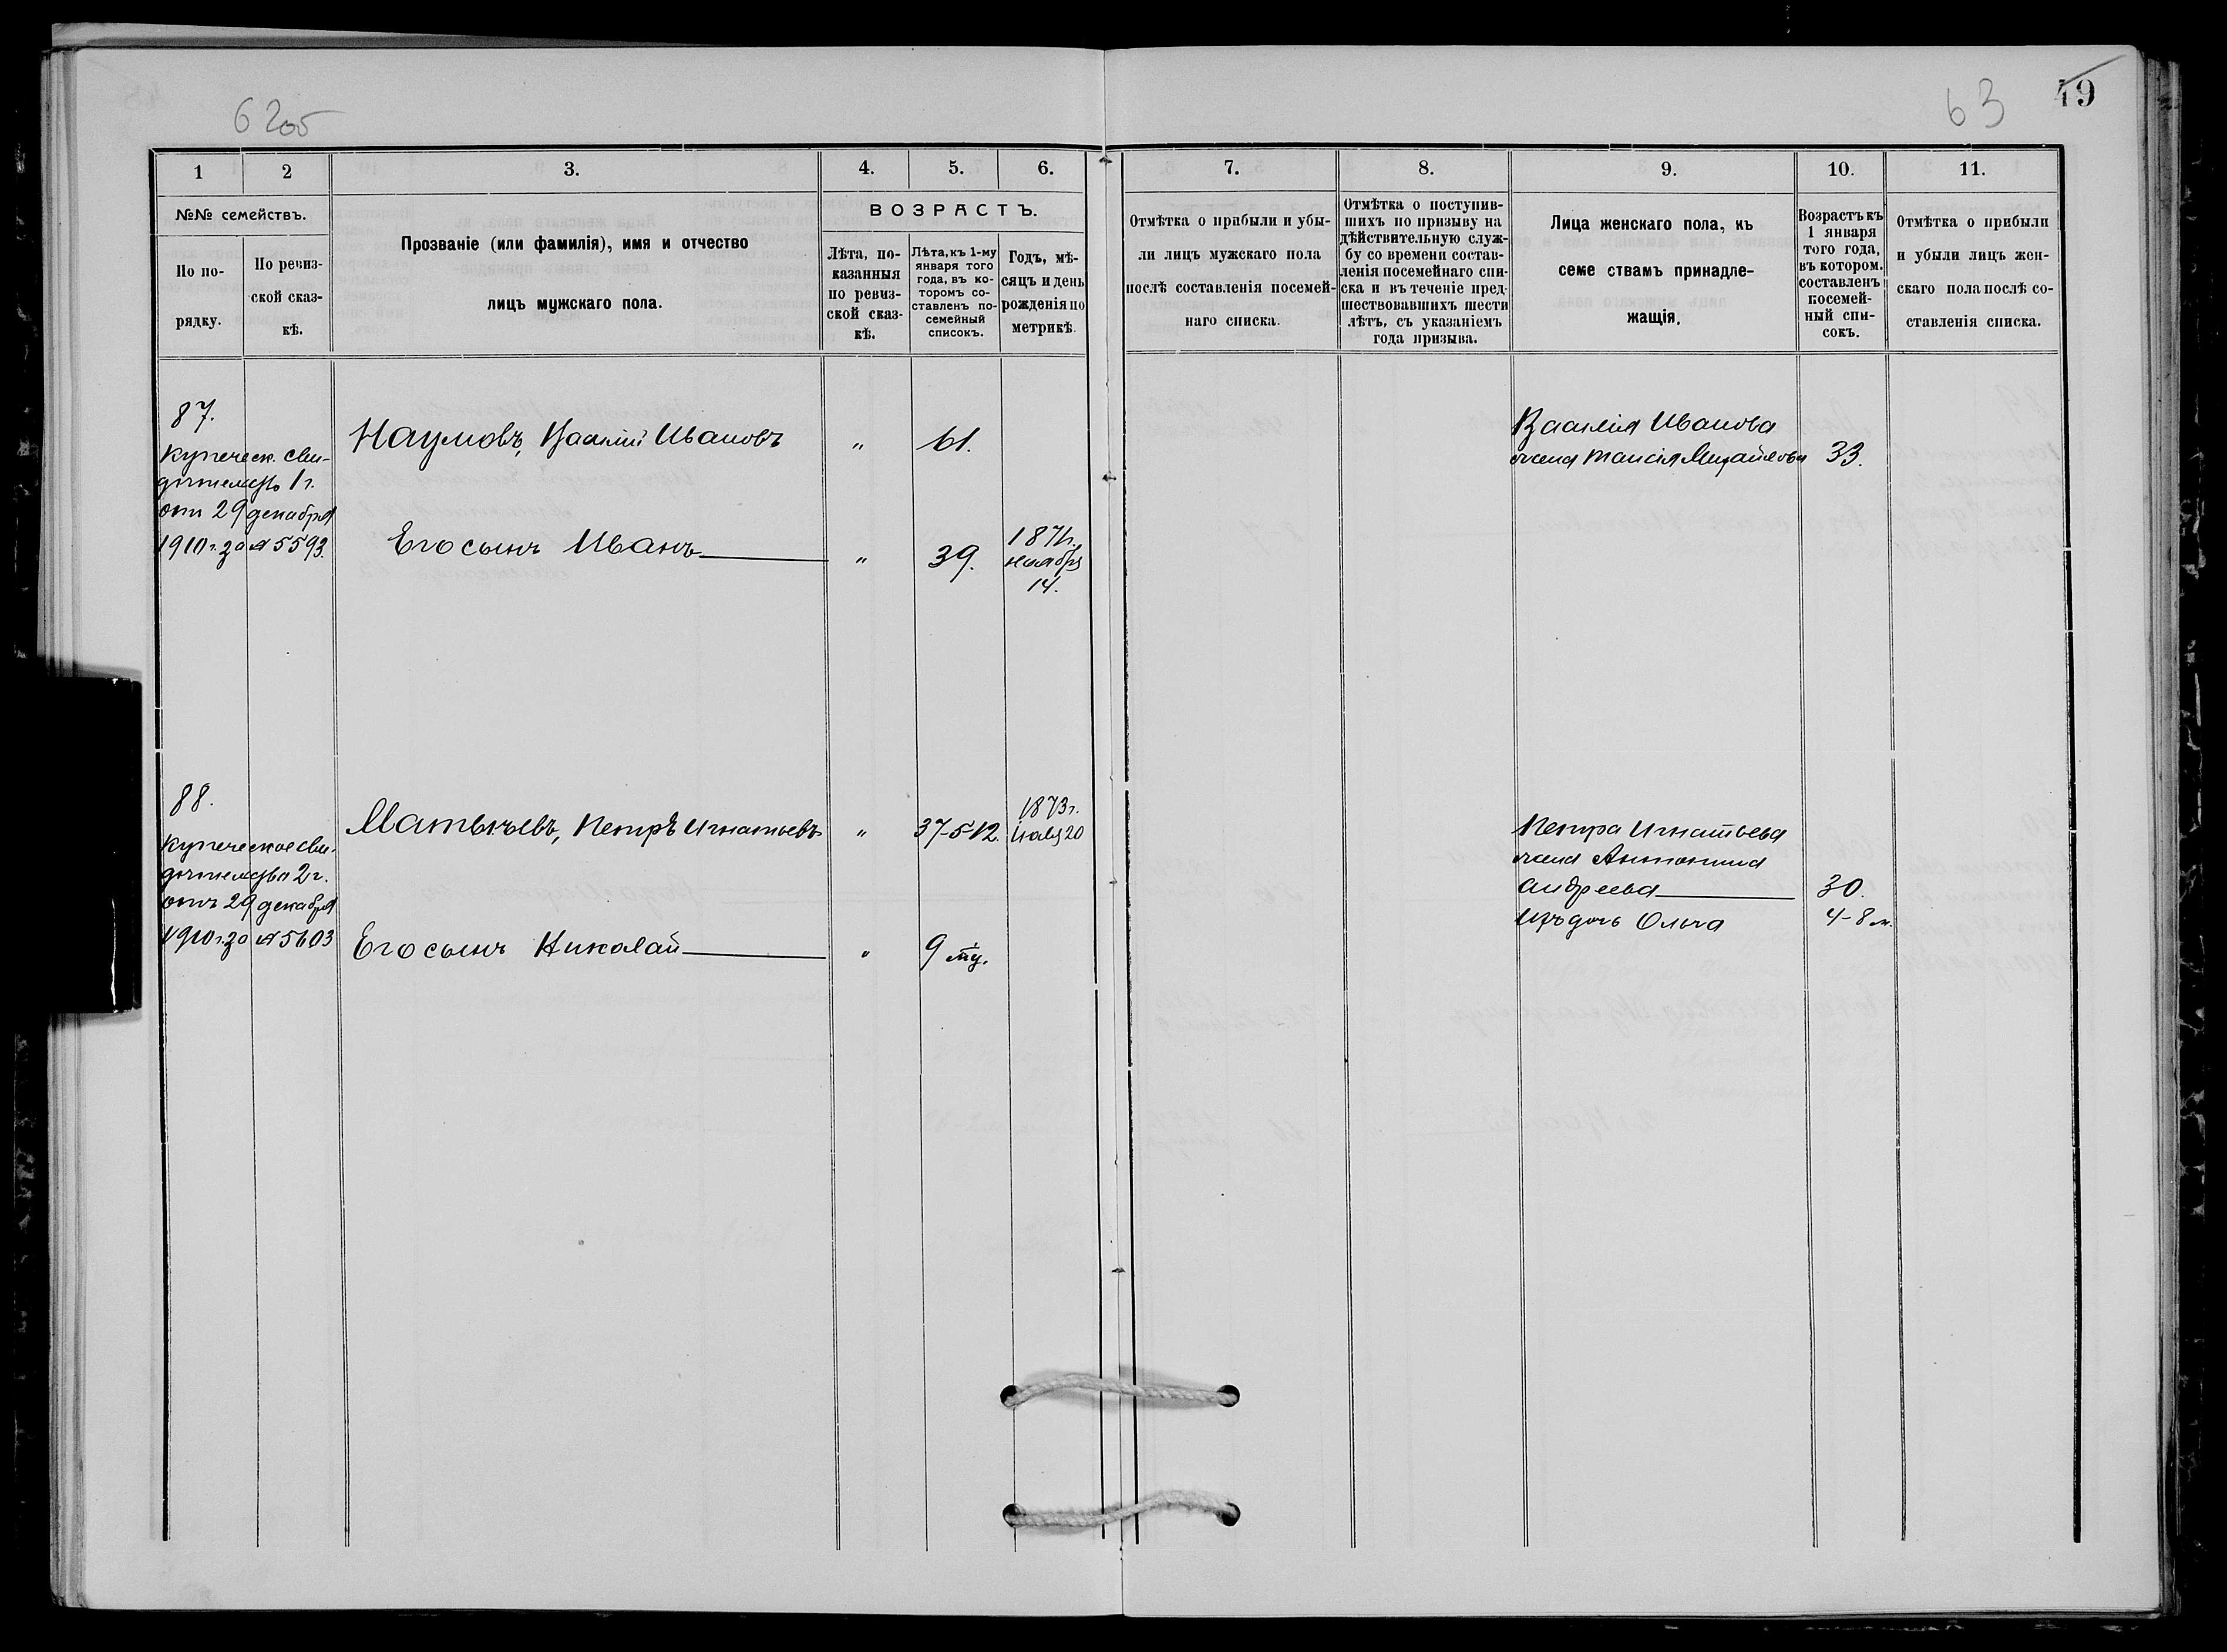 62об
63
49
1
2
3.
4.
5.
6.
7.
8.
9.
10.
11.
№№ семействъ.
По по-
рядку.
По ревиз-
ской сказ-
кѣ.
Прозваніе (или фамилія), имя и отчество
лицъ мужскаго пола.
ВОЗРАСТЪ.
Лѣта, по-
казанныя
по ревиз-
ской сказ-
кѣ.
Лѣта, къ 1-му
января того
года, въ ко-
торомъ со-
ставленъ по-
семейный
списокъ.
Годъ, мѣ-
сяцъ и день
рожденія по
метрикѣ.
Отмѣтка о прибыли и убы-
ли лицъ мужскаго пола
послѣ составленія посемей-
наго списка.
Отмѣтка о поступив-
шихъ по призыву на
дѣйствительную служ-
бу со времени состав-
ленія посемейнаго спи-
ска и въ теченіе пред-
шествовавшихъ шести
лѣтъ, съ указаніемъ
года призыва.
Лица женскаго пола, къ
семе ствамъ принадле-
жащія.
Возрастъ къ
1 января
того года,
въ котором.
составленъ
посемей-
ный спи-
сокъ.
Отмѣтка о прибыли
и убыли лицъ жен-
скаго пола послѣ со-
ставленія списка.
87.
Купеческ. сви-
дѣтельство 1 г.
отъ 29 декабря
1910 г. за № 5593.
Наумовъ, Василій Ивановъ " 61.
Его сынъ Иванъ " 39.
1871 г.
ноября
14.
Василія Иванова
жена Таисія Михайлова 33.
88.
Купеческое сви-
дѣтельство 2 г.
отъ 29 декабря
1910 г. за № 5603
Петръ Игнатьевъ " 37-5-12.
1873 г.
іюля 20
Его сынъ Николай " 9
Петра Игнатьева
жена Антонина
Андреева 30.
Ихъ дочь Ольга 4-8 м.